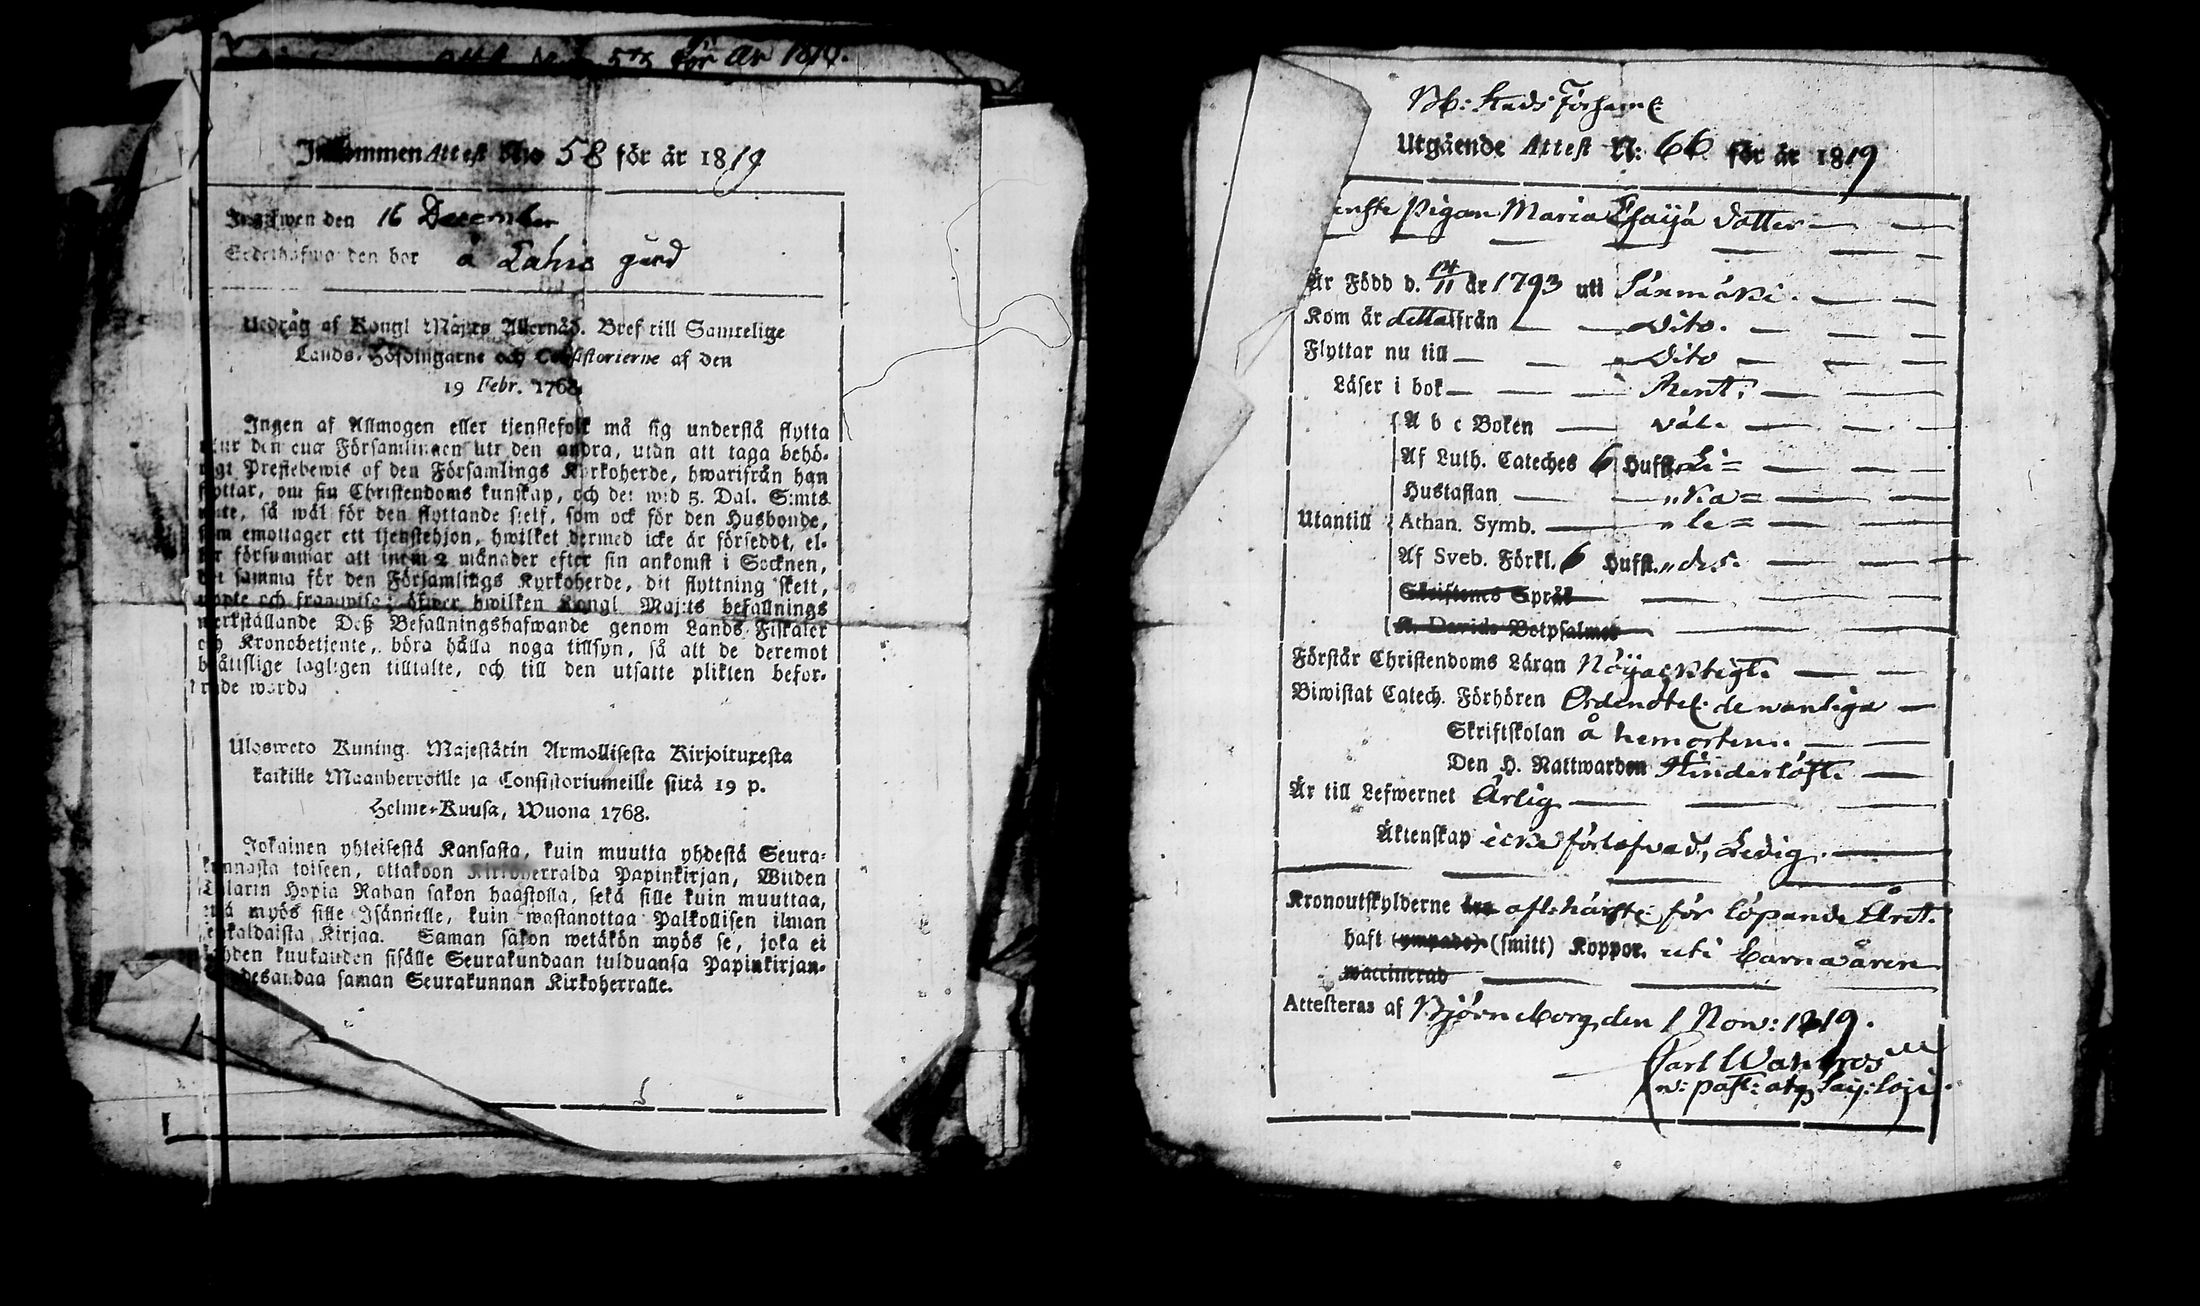 för år 1819.
Inkommen Attest No 58 för år 1819
Ingifwen den 16 December
den bor å Lahis gård
Utdrag af Kongl Maj:ts Allernåd. Bref till Samtelige
Lands-Höfdingarne och Consistorierne af den
19 Febr. 1768
Ingen af Allmogen eller tjenstefolk må sig understå flytta
utur den ena Församlingen uti den andra, utan att taga behö-
rigt Prestebewis af den Församlings Kyrkoherde, hwarifrån han
flyttar, om sin Christendoms kunskap, och det wid 5. Dal. S:mts
wite, så wäl för den flyttande sielf, som ock för den Husbonde,
som emottager ett tjenstehjon, hwilket dermed icke är försedt, el-
ler försummar att inom 2 månader efter sin ankomst i Socknen,
det samma för den Församlings Kyrkoherde, dit flyttning skett,
uppte och framwisa; öfwer hwilken Kongl Maj:ts befallnings
werkställande Deß Befallningshafwande genom Lands Fiskaler
och Kronobetjente, böra hålla noga tillsyn, så att de deremot
bråttslige lagligen tilltalte, och till den utsatte plikten befor-
trade warda
Ulosweto Kuning. Majestätin Armollisesta Kirjoituxesta
kaikille Maanherroille ja Consistoriumeille siitä 19 p.
Helme-Kuusa, Wuona 1768.
Jokainen yhteisestä Kansasta, kuin muutta yhdestä Seura-
kunnasta toiseen, ottakoon Kirkoherralda Papinkirjan, Wiiden
Talarin Hopia Rahan sakon haastolla, sekä sille kuin muuttaa,
että myös sille Isännelle, kuin wastanottaa Palkollisen ilman
senkaldaista Kirjaa. Saman sakon wetäkön myös se, joka ei
kahden kuukauden sisälle Seurakundaan tulduansa Papinkirjan-
desandaa saman Seurakunnan Kirkoherralle.
Bb: Stads Församl:
Utgående Attest N: 66 för år 1819
Pigan Maria Esaija dotter
Är Född d. 14/11 år 1793 uti Säxmäki.
Kom år detta ifrån Dito.
Flyttar nu till Dito
Läser i bok Rent.
A b c Boken väl.
Af Luth. Cateches 6 Hufst. Li=
Hustaflan "ka=
Utantill Athan. Symb. "le=
Af Sveb. Förkl. 6 Hufst. "des.
Skriftenes Språk
K. Davids Botpsalmer
Förstår Christendoms Läran Nöijacktigt.
Biwistat Catech. Förhören Ordentel: de wanliga
Skriftskolan å hemorten.
Den H. Nattwarden Hinderlöst.
Är till Lefwernet Ärlig
Äktenskap icke förlofvad, Ledig.
Kronoutskylderne för löpande Året.
haft (ympade) (smitt) Koppor. uti Barnaåren
waccinerad
Attesteras af Björneborg den 1 Nov: 1819.
Carl Wahlroos